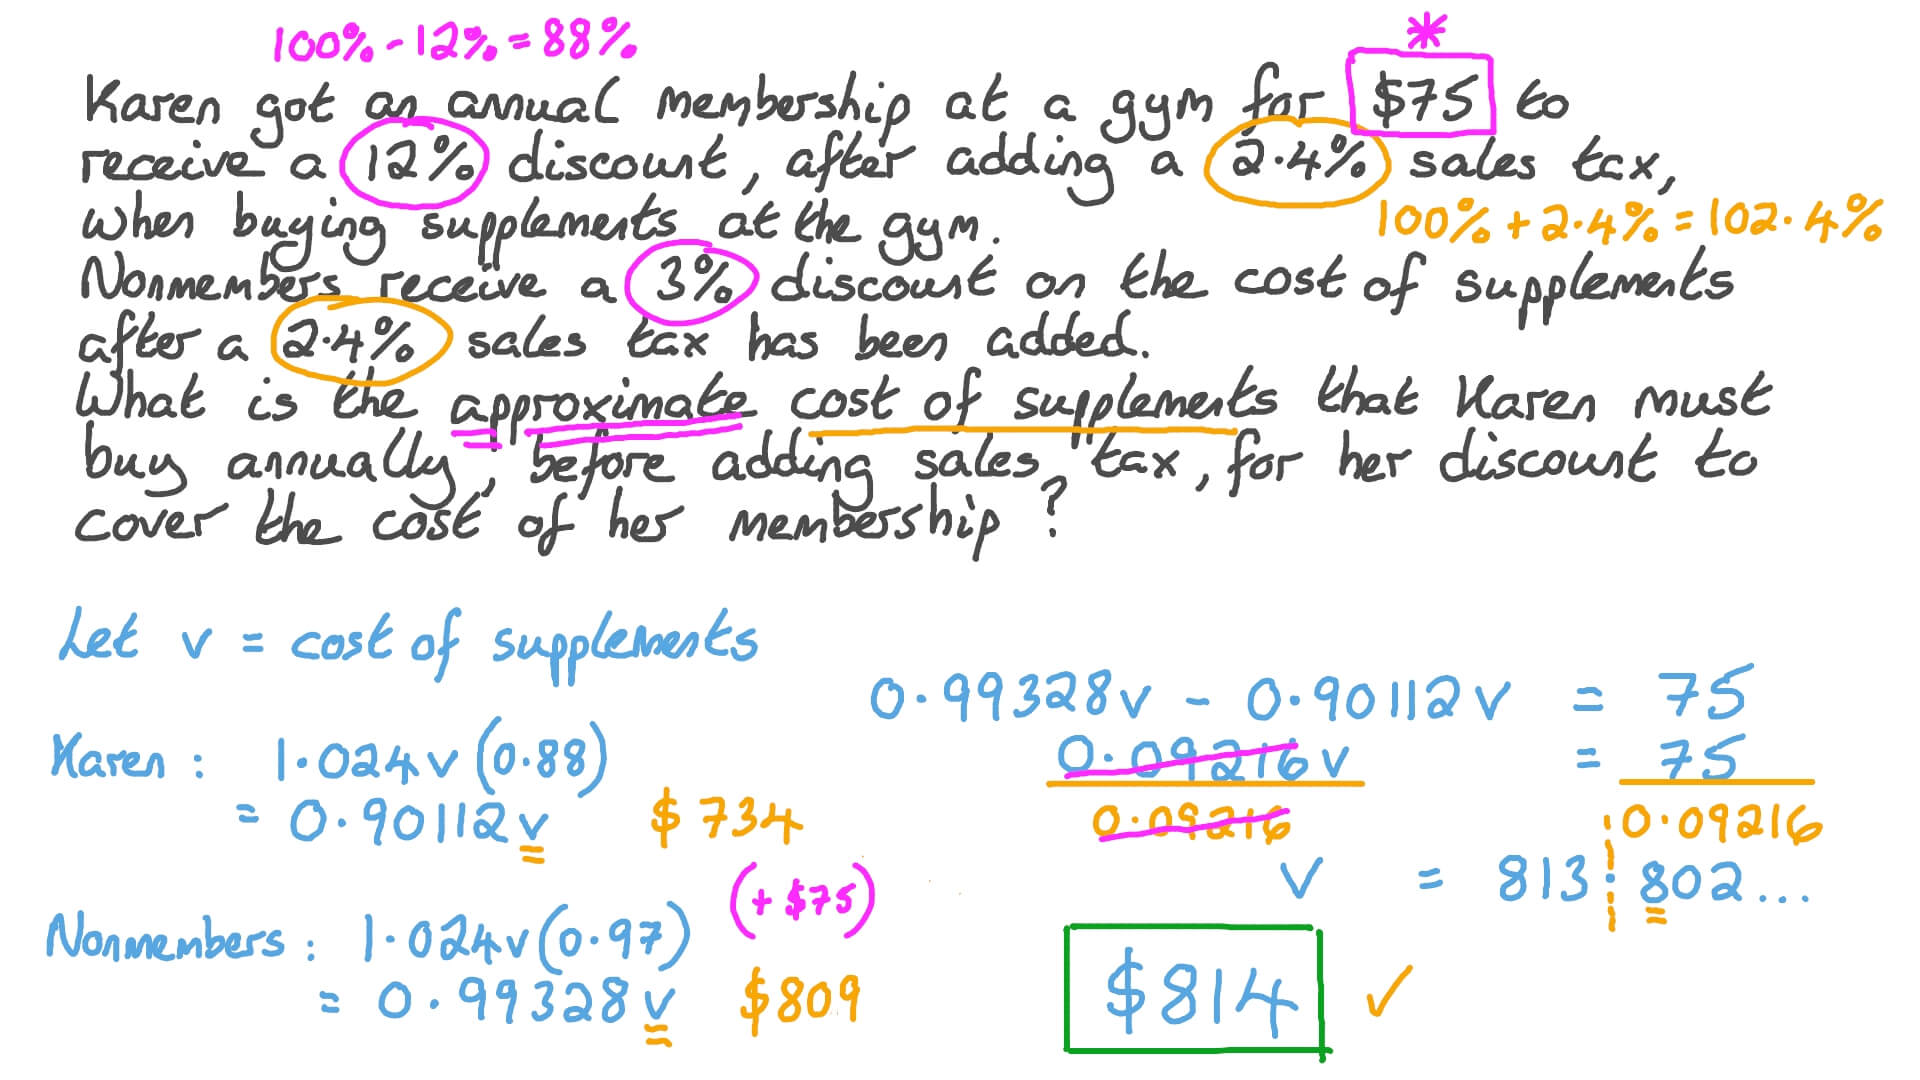 100% - 12% = 88%
*
Karen got an annual membership at a gym for $75 to
receive a 12% discount, after adding a 2.4% sales tax,
when buying supplements at the gym.
100% + 2.4% = 102.4%
Nonmembers receive a 3% discount on the cost of supplements
after a 2.4% sales tax has been added.
What is the approximate cost of supplements that Karen must
buy annually, before adding sales tax, for her discount to
cover the cost of her membership?
Let v = cost of supplements
Karen : 1.024v (0.88)
= 0.90112v $734
(+ $75)
Nonmembers : 1.024v (0.97)
= 0.99328v $809
0.99328v - 0.90112v = 75
0.09216v = 75
0.09216 0.09216
v = 813.802...
$814 ✓